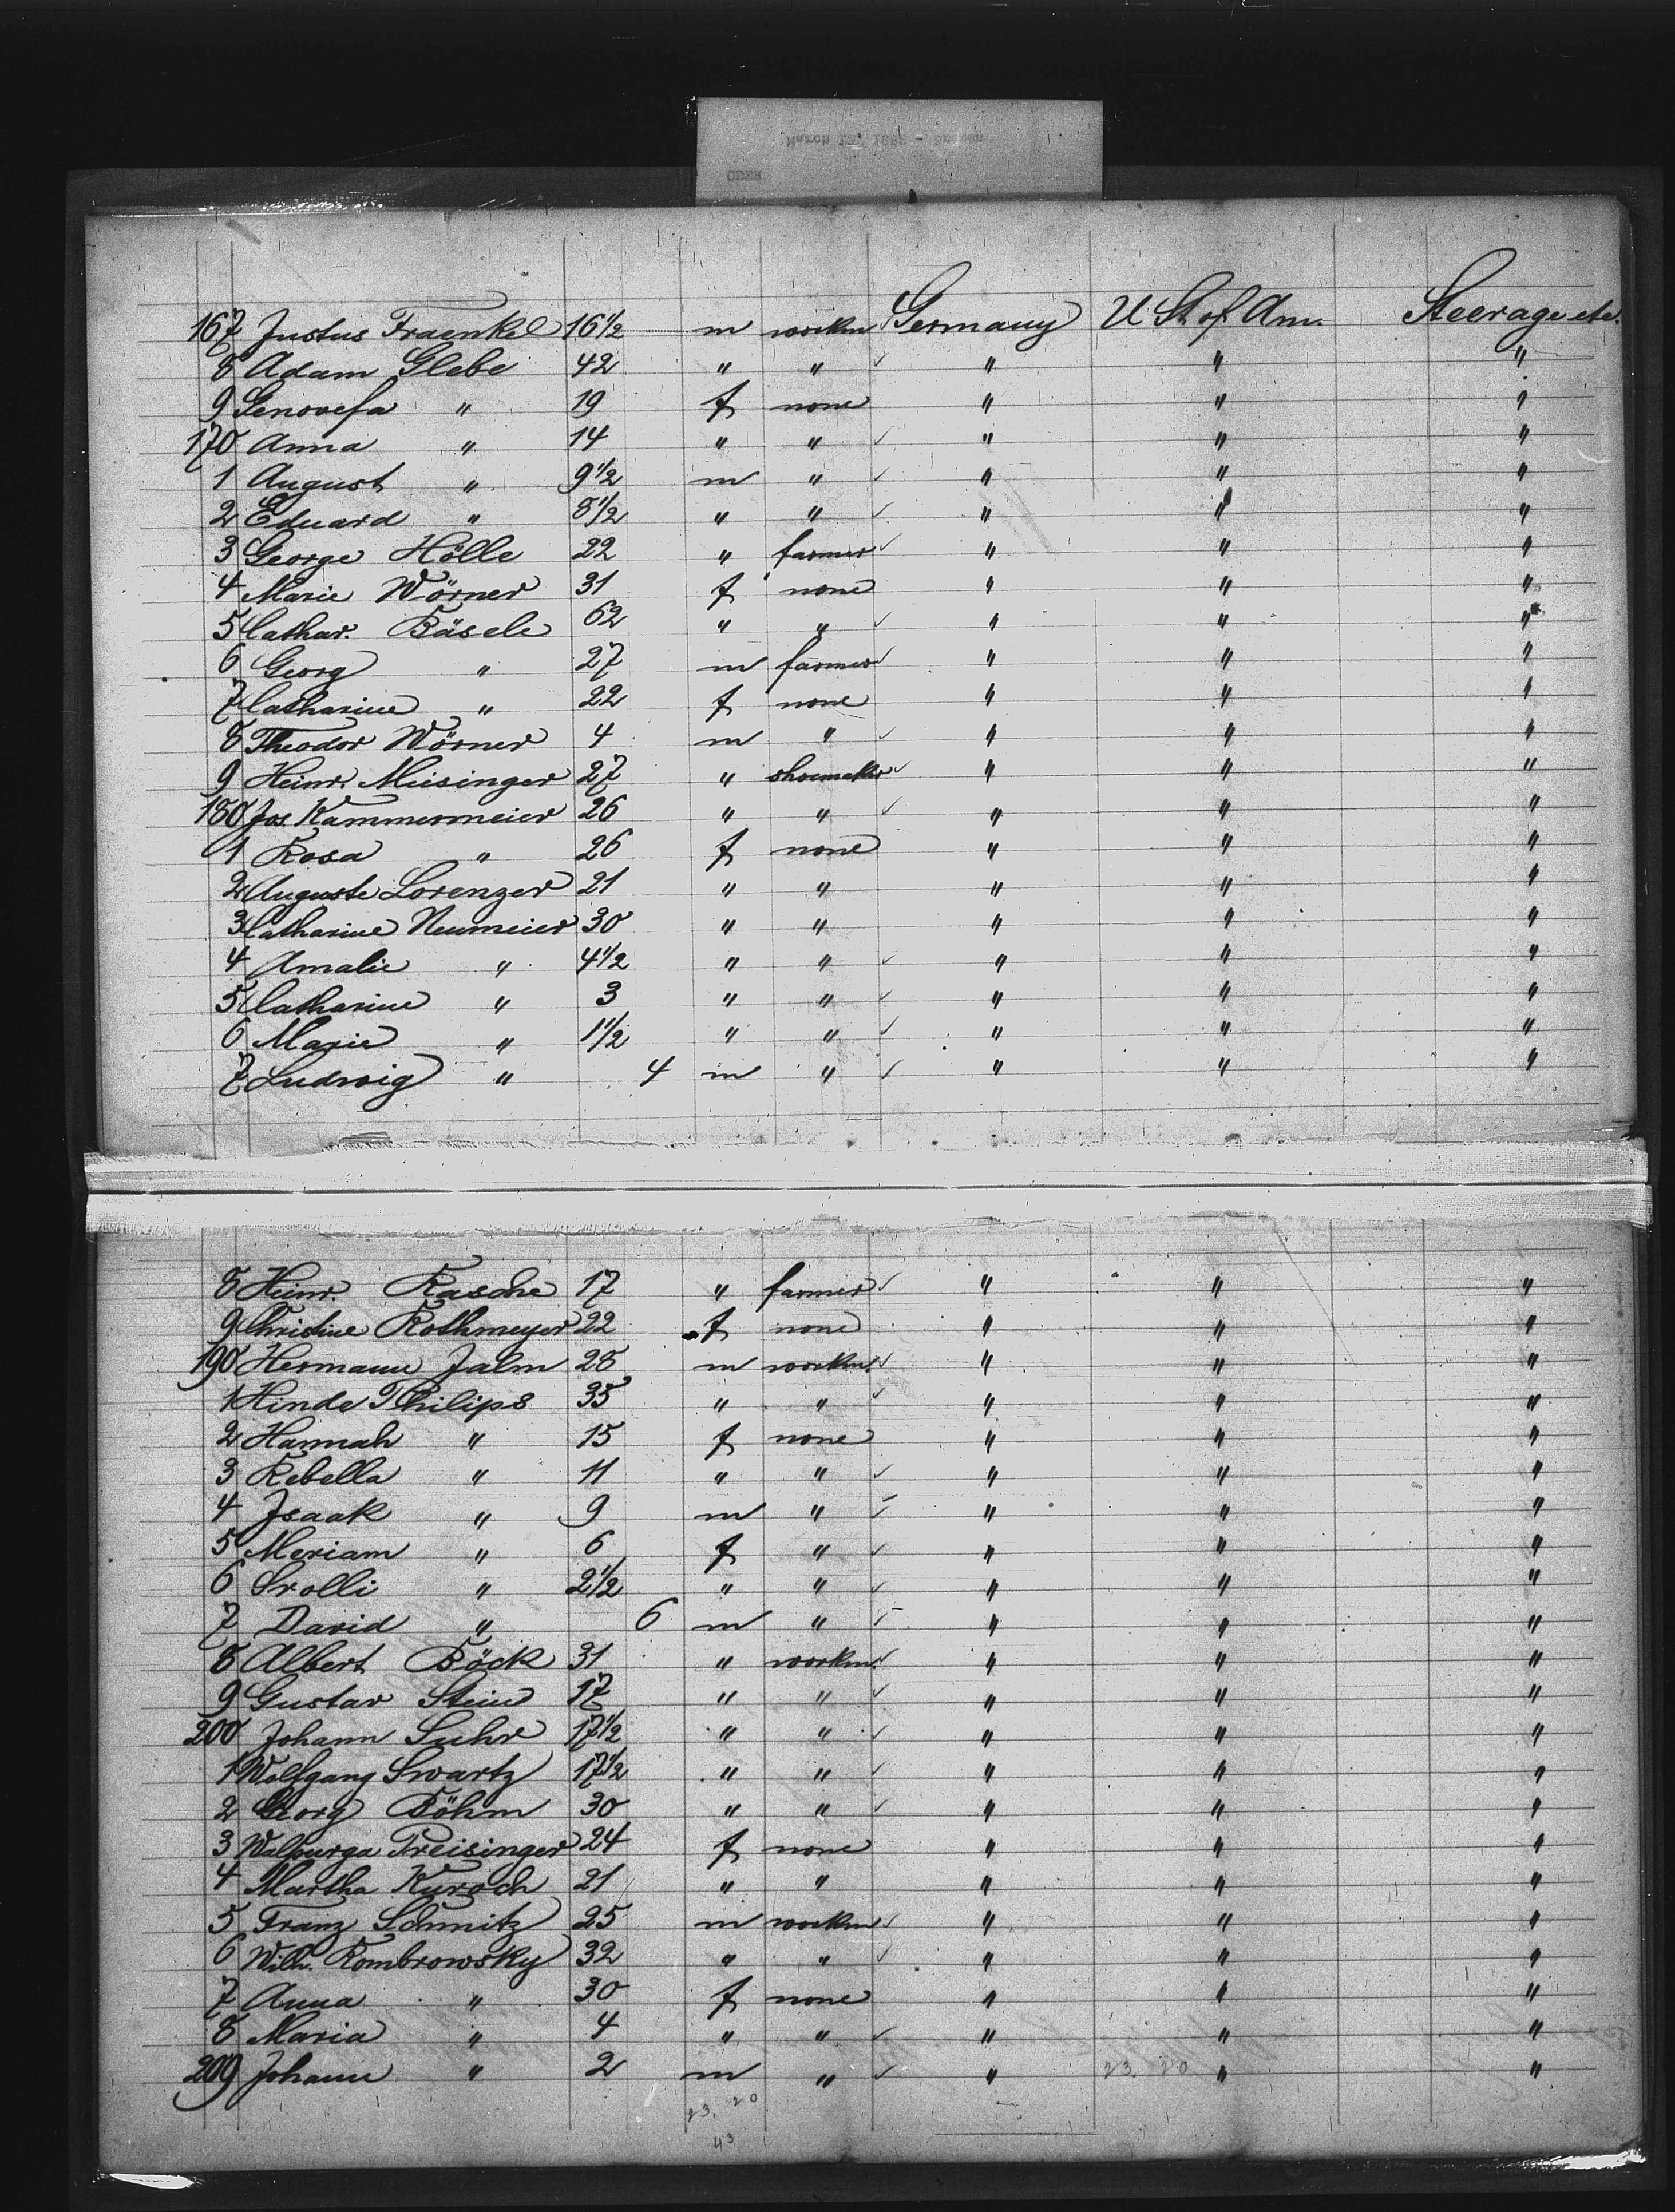 167 Justus Fraenkel 16 1/2 m workm Germany U St. of Am. Steerage etc.
8 Adam Glebe 42 " " " " "
9 Genovefa " 19 f none " " "
170 Anna " 14 " " " " "
1 August " 9 1/2 m " " " "
2 Eduard " 8 1/2 " " " " "
3 George Hölle 22 " farmer " " "
4 Marie Wörner 31 f none " " "
5 Cathar. Bäsele 62 " " " " "
6 Georg " 27 m farmer " " "
7 Catharine " 22 f none " " "
8 Theodor Wörner 4 m " " " "
9 Heinr. Meisinger 27 " shoemaker " " "
180 Jos. Kammermeier 26 " " " " "
1 Rosa " 26 f none " " "
2 Auguste Lorenzer 21 " " " " "
3 Catharine Neumeier 30 " " " " "
4 Amalie " 4 1/2 " " " " "
5 Catharine " 3 " " " " "
6 Marie " 1 1/2 " " " " "
7 Ludwig " 4 m " " " "
8 Heinr. Rasche 17 " farmer " " "
9 Christine Rothmeyer 22 f none " " "
190 Hermann Jalm 28 m workm. " " "
1 Hinde Philips 35 " " " " "
2 Hannah " 15 f none " " "
3 Rebella " 11 " " " " "
4 Isaak " 9 m " " " "
5 Meriam " 6 f " " " "
6 Srolli " 2 1/2 " " " " "
7 David " 6 m " " " "
8 Albert Böck 31 " workm. " " "
9 Gustav Stein 17 " " " " "
200 Johann Suhr 17 1/2 " " " " "
1 Wolfgang Swartz 17 1/2 " " " " "
2 Georg Böhm 30 " " " " "
3 Walburga Preisinger 24 f none " " "
4 Martha Kuroch 21 " " " " "
5 Franz Schmitz 25 m workm " " "
6 Wilh. Rombrowsky 32 " " " " "
7 Anna " 30 f none " " "
8 Maria " 4 " " " " "
209 Johann " 2 m " " 23. 20 " "
23. 20
43